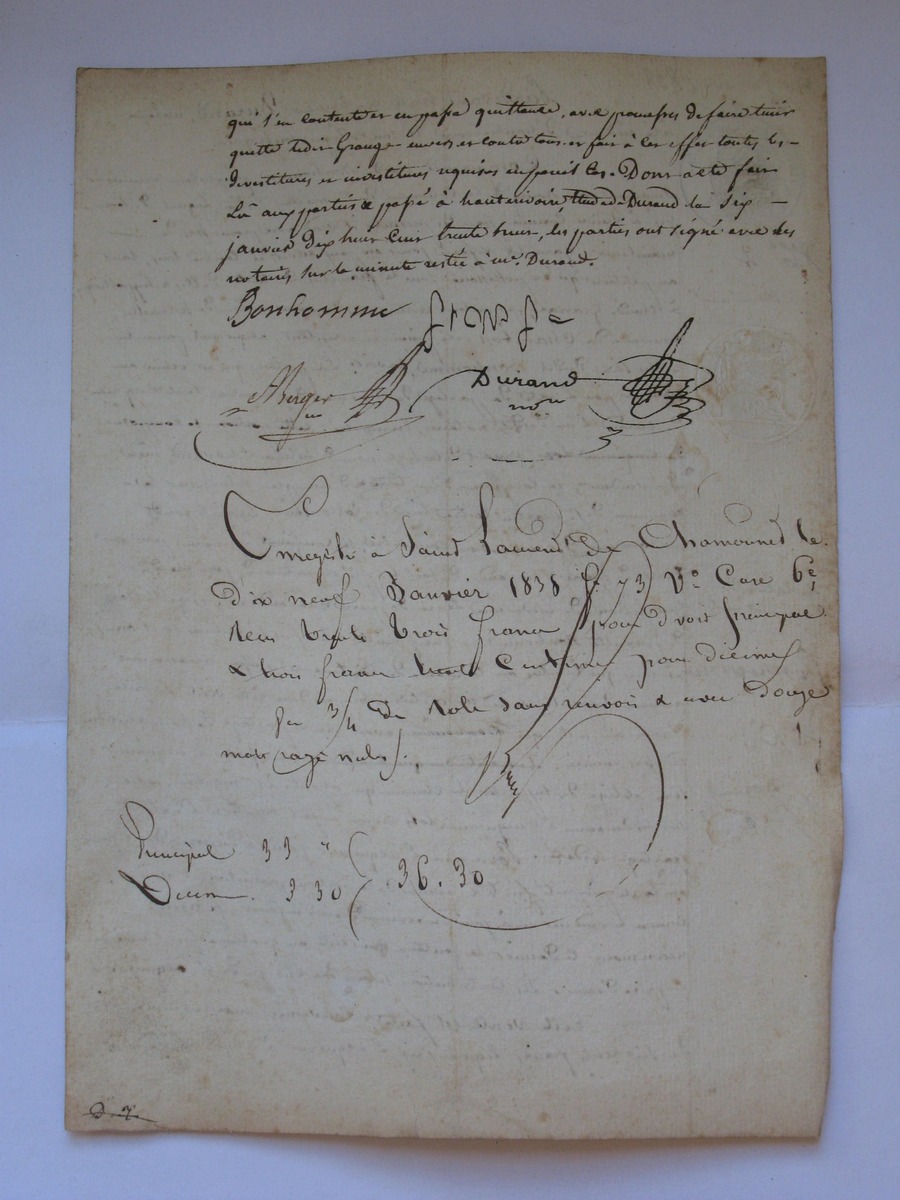 qui s'en contente et en passe quittance, avec promesse de faire tenir
quitte ledit Grange envers et contre tous et fait à cet effet toutes les
devestitures et investitures requises en pareil cas. Dont acte fait
Lû aux parties & passé à hauterivoire, Etude de Durand le six
janvier dix huit cent trente huit, les parties ont signé avec les
notaires sur la minute restée à me. Durand.
Bonhomme
Berger
Durand
nore
Enregistré à Saint Laurent de Chamousset le
dix neuf Janvier 1838 fo 73 Vo Case 6e,
reçu trente trois francs pour droit principal
& trois francs trente Centimes pour décimes
fu 3/4 de role sans renvois & avec douze
mots rayés nuls.
Principal 33 "
Décime . 3 30
36.30